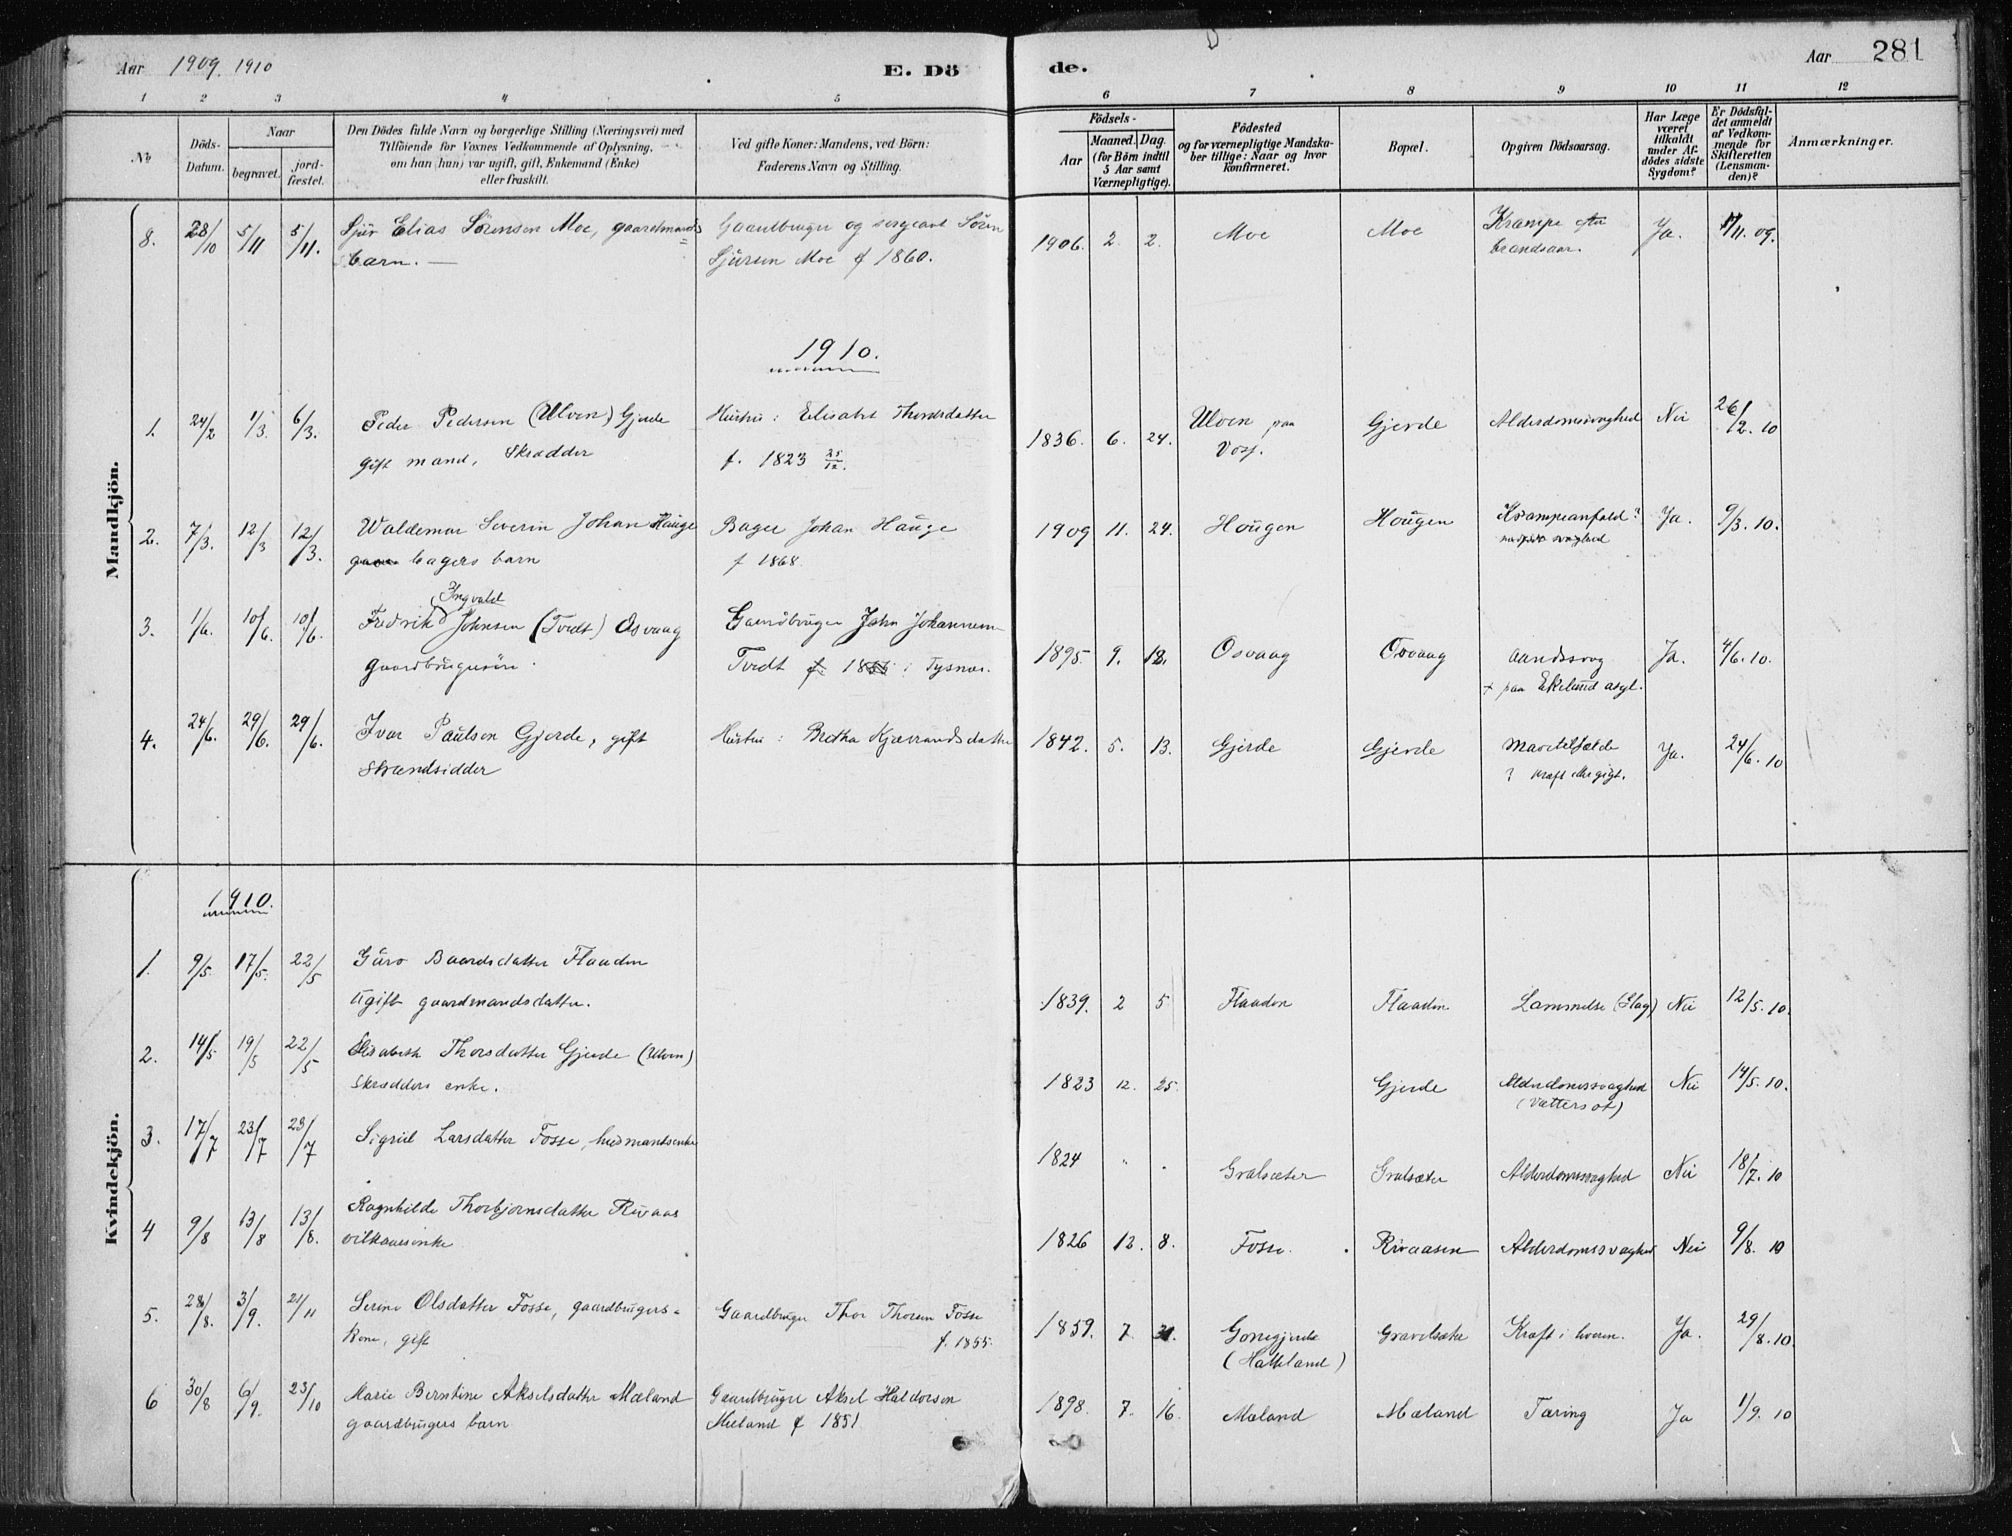 Aar 1909. 1910
E. Dö
de.
Aar 281
1 2 3 4 5 6 7 8 9 10 11 12
No
Döds-
Datum.
Naar
begravet.
jord-
fæstet.
Den Dödes fulde Navn og borgerlige Stilling (Næringsvei) med
Tilföiende for Voxnes Vedkommende af Oplysning,
om han (hun) var ugift, gift, Enkemand (Enke)
eller fraskilt.
Ved gifte Koner: Mandens, ved Börn:
Faderens Navn og Stilling.
Födsels-
Aar
Maaned. Dag.
(for Börn indtil
5 Aar samt
Værnepligtige).
Födested
og for værnepligtige Mandska-
ber tillige: Naar og hvor
konfirmeret.
Bopæl.
Opgiven Dödsaarsag.
Har Læge
været
tilkaldt
under Af-
dödes sidste
Sygdom?
Er Dödsfal-
det anmeldt
af Vedkom-
mende for
Skifteretten
(Lensman-
den)?
Anmærkninger.
Mandkjön.
8. 28/10 5/11 5/11. Sjur Elias Sörensen Moe, gaardmands= Gaardbruger og sergeant Sören 1906. 2. 2. Moe Moe Krampe efter Ja. 1/11. 09.
barn. — Sjursen Moe f 1860. brandsaar.
1910.
1. 24/2 1/3. 6/3. Peder Pedersen (Ulven) Gjerde Hustru: Elisabet Thorsdatter 1836. 6. 24. Ulven paa Gjerde Alderdomssvaghed Nei 26/2. 10
gift mand, Skrædder f. 1823 25/12. Voss.
2. 7/3. 12/3 12/3. Waldemar Severin Johan Hauge Bager Johan Hauge 1909 11. 24. Hougen Hougen Krampeanfald? Ja. 9/3. 10.
bagers barn f 1868. svaghed
Ingvald
3. 1/6. 10/6. 10/6. Fredrik Johnsen (Tvedt) Osvaag Gaardbruger John Johannesen 1895. 9. 12. Osvaag Osvaag aandssvag Ja. 4/6. 10.
gaardbrugersön. Tvedt f. i Tysnæs. + paa Ekelund asyl.
4. 24/6. 29/6. 29/6. Ivar Paulsen Gjerde, gift Hustru: Bretha Kjævrandsdatter 1842. 5. 13. Gjerde Gjerde Ja. 24/6. 10
Strandsidder ? kræft eller gigt.
Kvindekjön.
1910.
1. 9/5 17/5. 22/5 Guro Baardsdatter Flaaden
ugift gaardmandsdatter. 1839. 2 5 Flaaden Flaaden. Lammelse (Slag) Nei 12/5. 10.
2. 14/5 19/5 22/5 Elisabeth Thorsdatter Gjerde (Ulven)
Skrædders enke. 1823 12. 25. Gjerde Alderdomssvaghed Nei 14/5. 10.
(Vættersot)
3. 17/7 23/7 23/7 Sigrid Larsdatter Fosse, husmandsenke 1824 " . Gralsæter Gralsæter Alderdomssvaghed Nei 18/7. 10
4 9/8 13/8 13/8. Ragnhilde Thorbjornsdatter Rivaas 1826 12. 8. Fosse. Rivaasen Alderdomssvaghed Nei 9/8. 10
vilkaarsenke
5. 28/8. 3/9. 21/11 Serine Olsdatter Fosse, gaardbrugers= Gaardbruger Thor Thorsen Fosse 1859. 7 31. Gonegjerde Gravelsæter Kræft i liveren. Ja. 29/8. 10
kone, gift f. 1855. (Halleland)
6 30/8 6/9. 23/10 Marie Berntine Akselsdatter Mæland Gaardbruger Aksel Haldorsen 1898. 7. 16. Mæland Mæland Tæring Ja 1/9. 10
gaardbrugers barn Mæland f 1851